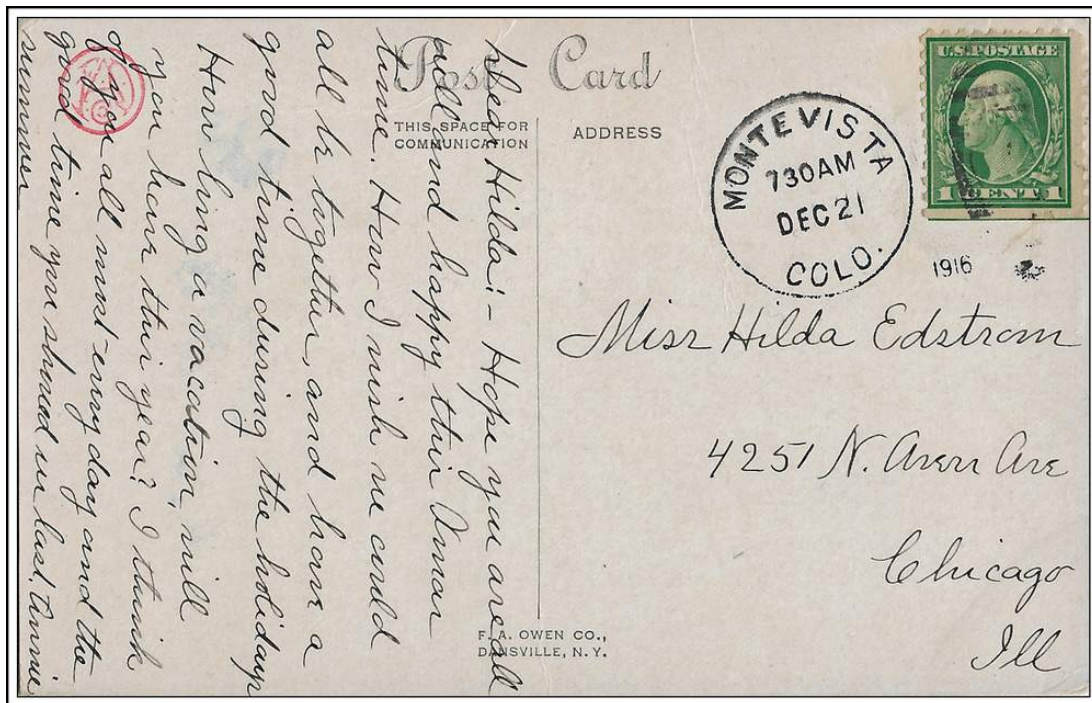 Post Card
THIS SPACE FOR
COMMUNICATION
ADDRESS
U.S. POSTAGE
1 CENT 1
MONTE VISTA
730AM
DEC 21
COLO.
1916
Miss Hilda Edstrom
4251 N. Avers Ave
Chicago
Ill
F. A. OWEN CO.,
DANSVILLE, N. Y.
Dear Hilda:- Hope you are all
well and happy this Xmas
time. How I wish we could
all be together, and have a
good time during the holidays
How long a vacation, will
you have this year? I think
of you all most every day and the
good time you showed us last. Annie
summer